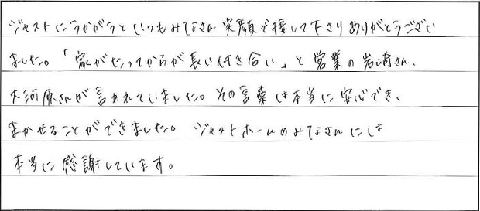 ジャストにうかがうといつもみなさん笑顔で接して下さりありがとうござい
ました。「家がたってからが長い付き合い」と営業の岩崎さん、
大河原さんが言われていました。その言葉は本当に安心でき、
まかせることができました。ジャストホームのみなさんには
本当に感謝しています。